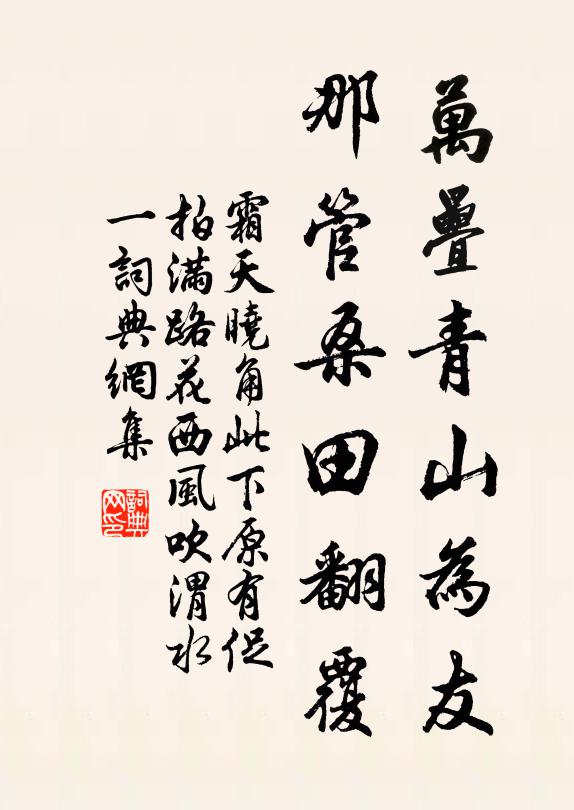 萬疊青山為友
那管桑田翻覆
霜天曉角此下原有促
拍滿路花西風吹渭水
一詞典網集
詞典
网印